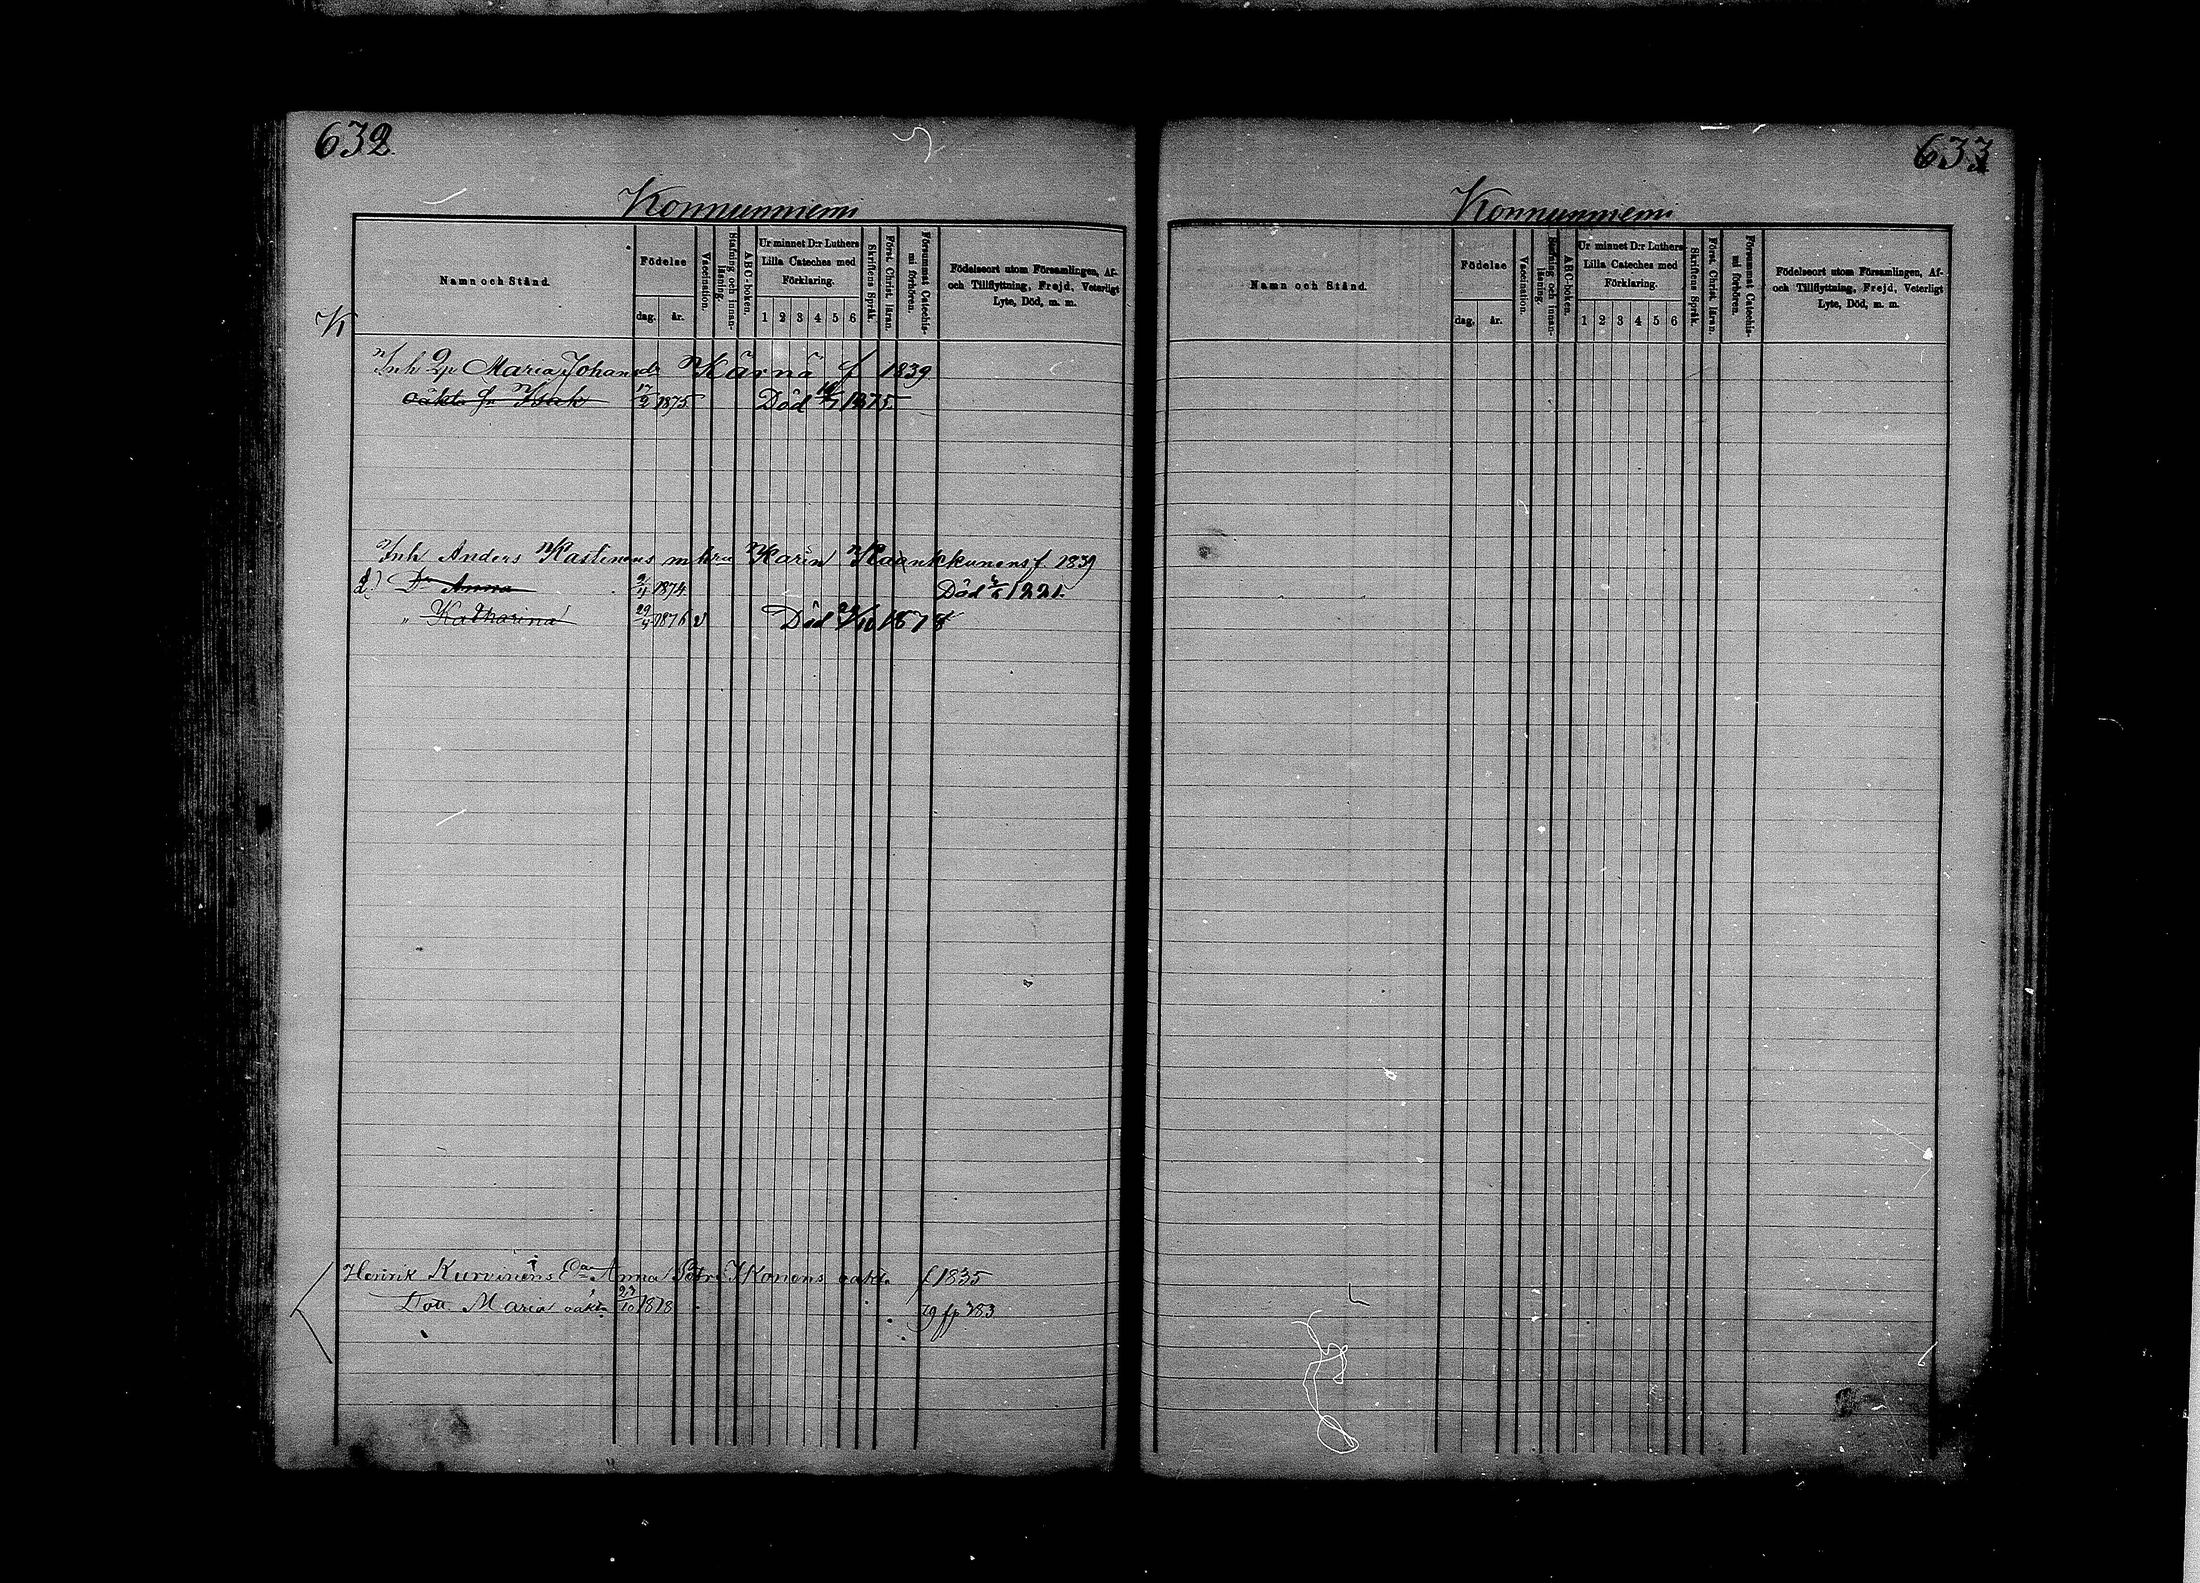 632
Konnunniemi
Namn och Stånd.
Födelse
dag. år.
Vaccination.
Stafning och innan-läsning.
ABC-boken.
Ur minnet D:r Luthers
Lilla Cateches med
Förklaring.
1 2 3 4 5 6
Skriftens Språk.
Först. Christ. läran.
Försummat Catechis-mi förhören.
Födelseort utom Församlingen, Af-
och Tillflyttning, Frejd, Veterligt
Lyte, Död, m. m.
K
Inh Maria Johansdr Kärnä f 1839
oäkta Isak 17/2 1875 Död 1875
Inh Anders Kastinens Karin f. 1839
Dr Anna 9/4 1874 Död
" Katharina 29/4 1876 v Död 1878
Henrik Kurvinens Anna Petr. Ikonens oäkta f 1835
Dott. Maria oäkta 23/10 1878 783
633
Konnunniemi
Namn och Stånd.
Födelse
dag. år.
Vaccination.
Stafning och innan-läsning.
ABC-boken.
Ur minnet D:r Luthers
Lilla Cateches med
Förklaring.
1 2 3 4 5 6
Skriftens Språk.
Först. Christ. läran.
Försummat Catechis-mi förhören.
Födelseort utom Församlingen, Af-
och Tillflyttning, Frejd, Veterligt
Lyte, Död, m. m.